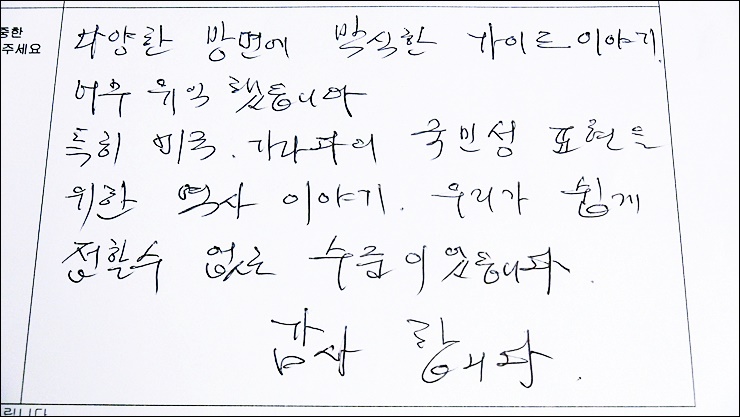 중한
주세요
다양한 방면에 박식한 가이드 이야기.
너무 유익 했습니다
특히 미국. 캐나다의 국민성 표현을
위한 역사 이야기. 우리가 쉽게
접할수 없는 수준이었습니다.
감사 합니다.
립니다